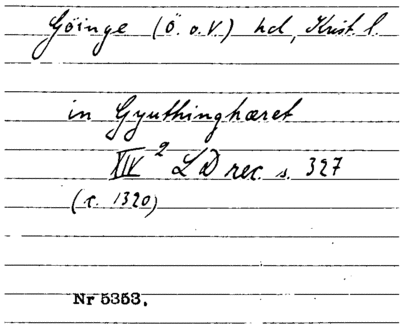 Göinge (Ö. o. V.) hd, Krist. l.
in Gyuthinghæret
XIV 2 LD rec. s. 327
(c. 1320)
Nr 5353.